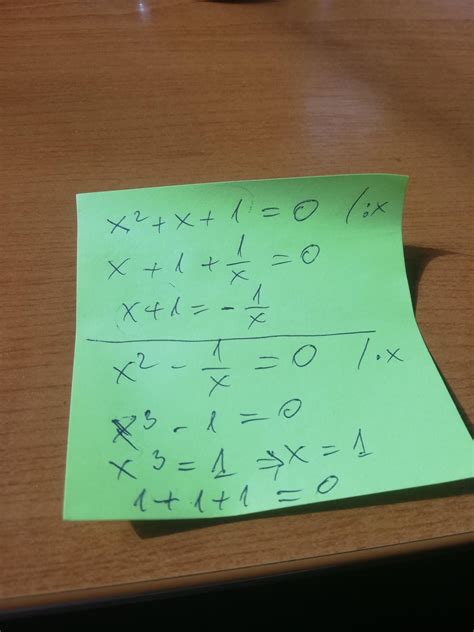 x² + x + 1 = 0 /:x
x + 1 + 1/x = 0
x + 1 = - 1/x
x² - 1/x = 0 /·x
x³ - 1 = 0
x³ = 1 ⇒ x = 1
1 + 1 + 1 = 0